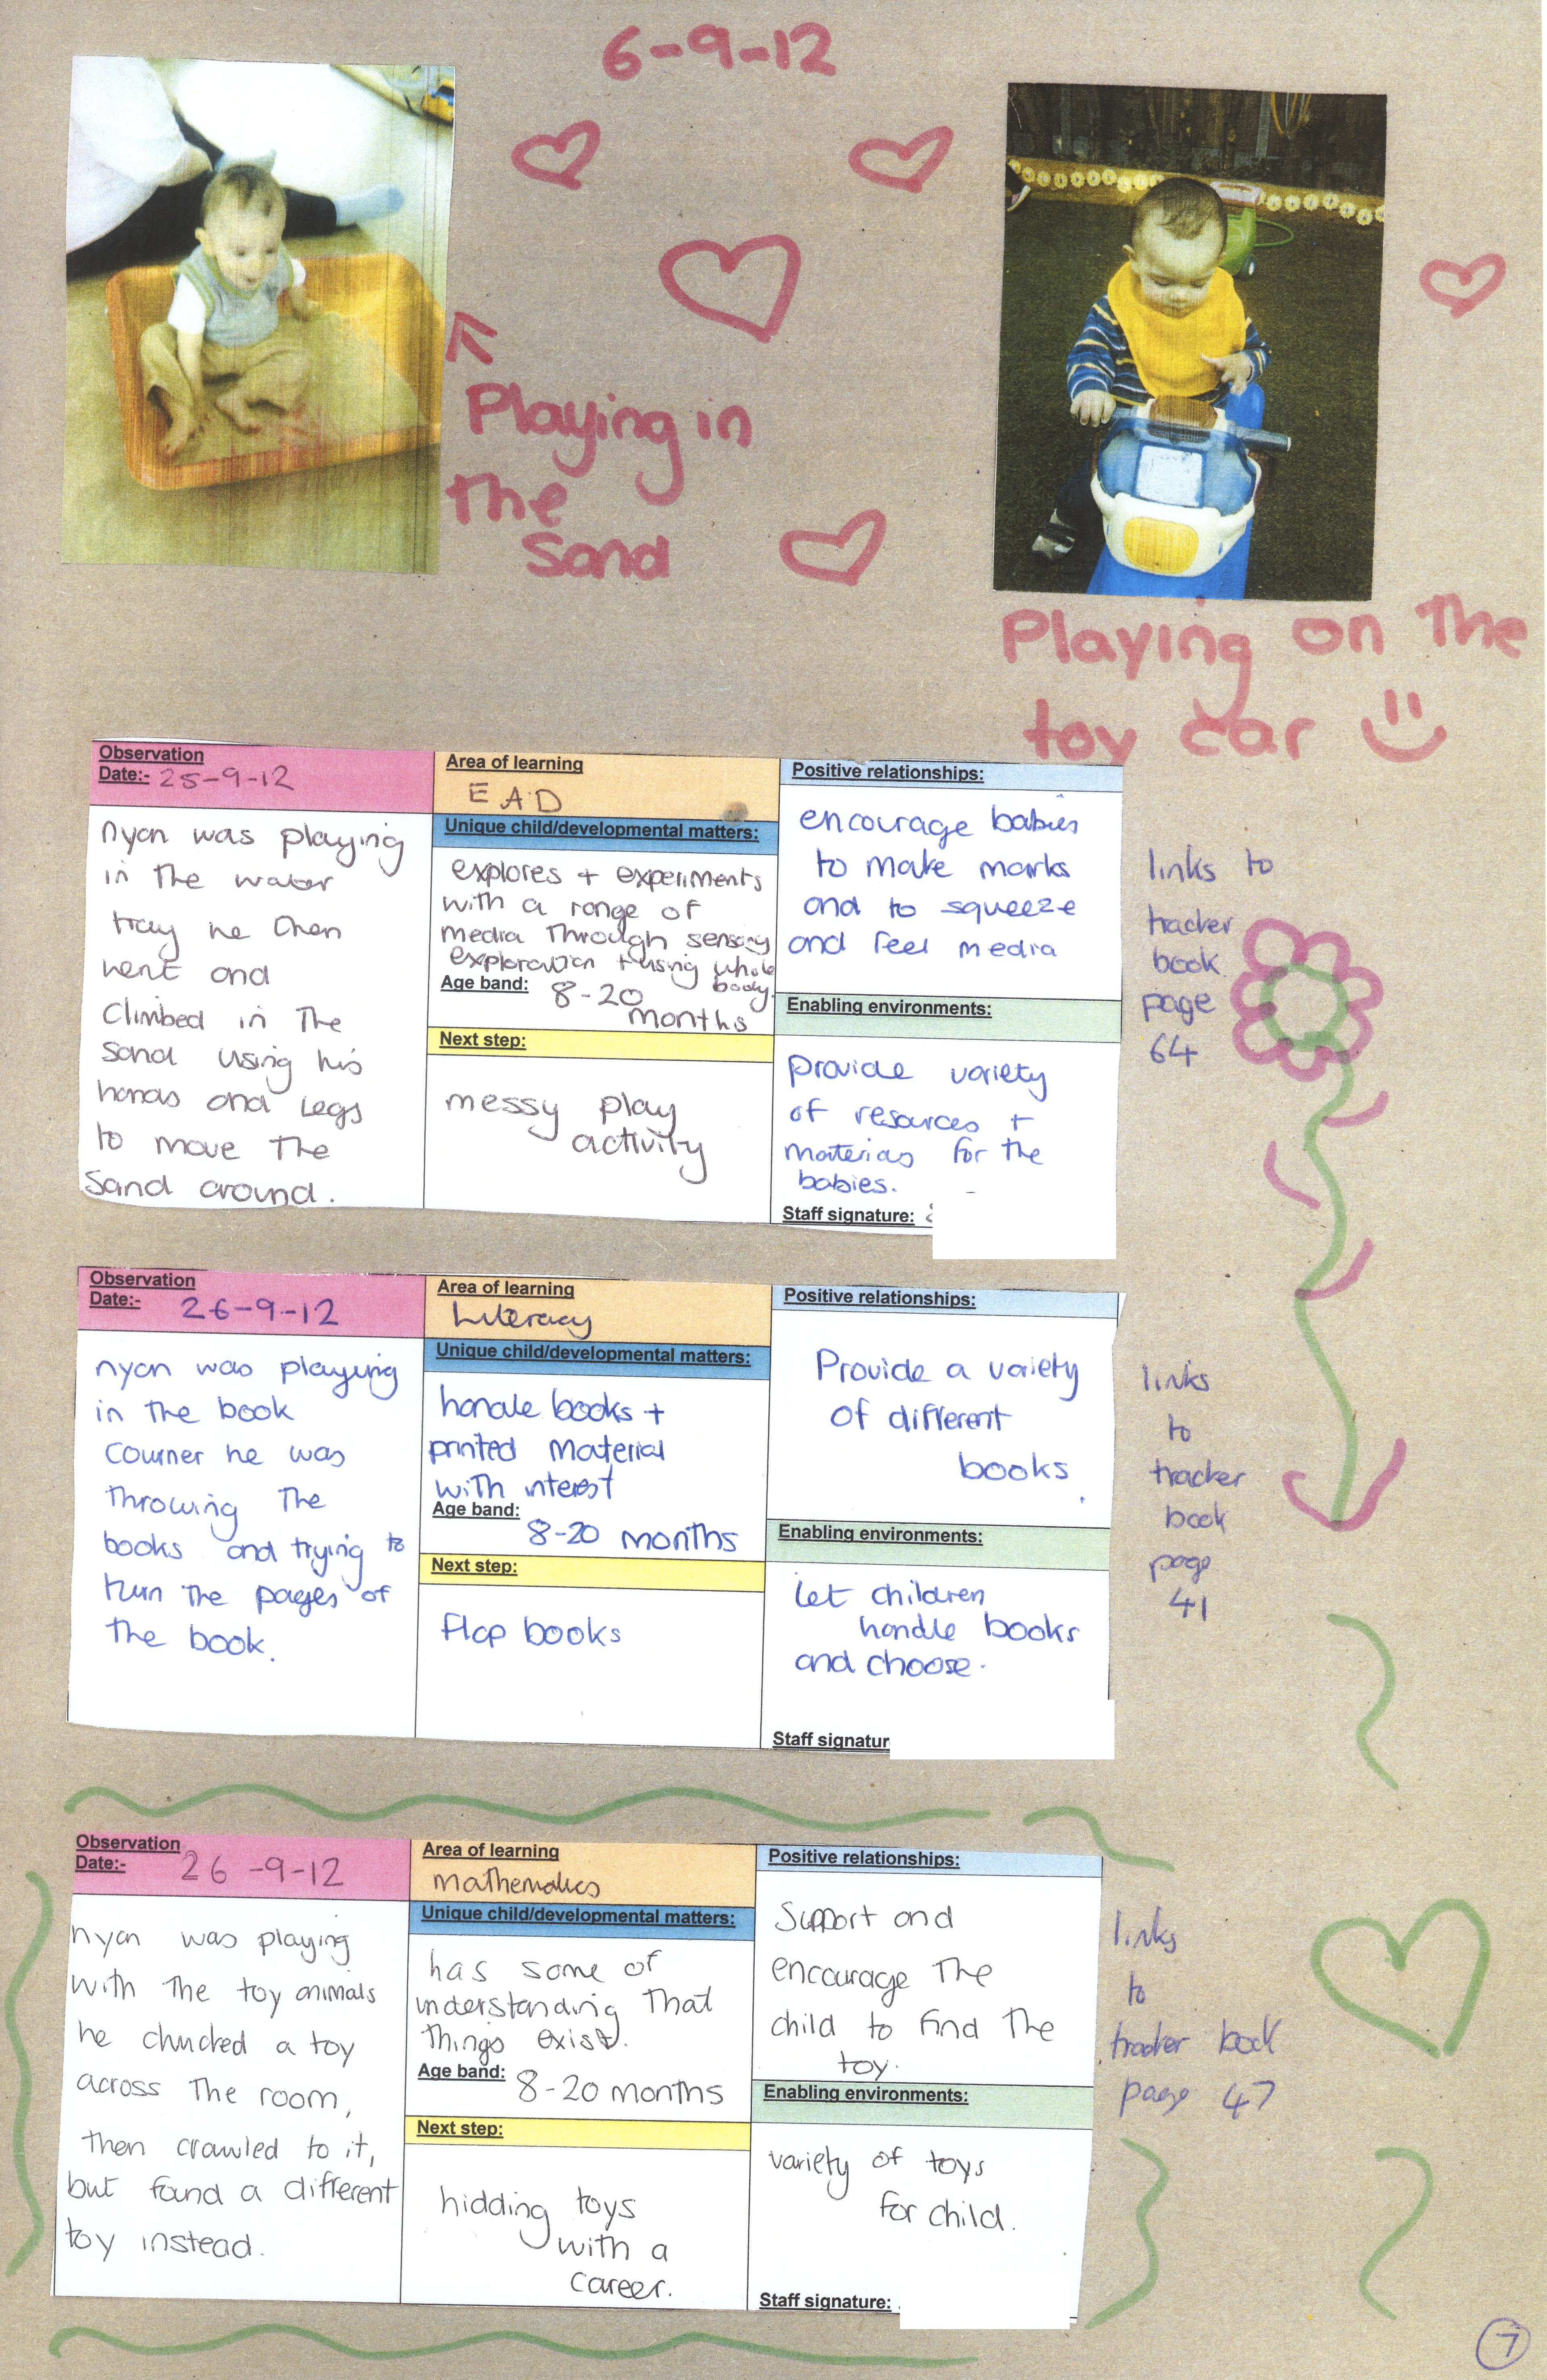 6-9-12
Playing in
the
Sand
Playing on the
toy car
Observation
Date:- 25-9-12
nyan was playing
in the water
tray he then
went and
climbed in the
sand using his
hands and legs
to move the
sand around.
Area of learning
EAD
Unique child/developmental matters:
explores + experiments
with a range of
media through sensory
exploration + using whole
body.
Age band: 8-20
months
Next step:
messy play
activity
Positive relationships:
encourage babies
to make marks
and to squeeze
and feel media
Enabling environments:
provide variety
of resources +
materias for the
babies.
Staff signature:
links to
tracker
book
page
64
Observation
Date:- 26-9-12
nyan was playing
in the book
courner he was
throwing the
books and trying to
turn the pages of
the book.
Area of learning
Literacy
Unique child/developmental matters:
handle books +
printed material
with interest
Age band:
8-20 months
Next step:
flap books
Positive relationships:
Provide a variety
of different
books.
Enabling environments:
Let children
handle books
and choose.
Staff signatur
links
to
tracker
book
page
41
Observation
Date:- 26-9-12
nyan was playing
with the toy animals
he chucked a toy
across the room,
then crawled to it,
but found a different
toy instead.
Area of learning
mathematics
Unique child/developmental matters:
has some of
understanding that
things exist.
Age band: 8-20 months
Next step:
hidding toys
with a
career.
Positive relationships:
Support and
encourage the
child to find the
toy.
Enabling environments:
variety of toys
for child.
Staff signature:
links
to
tracker book
page 47
7